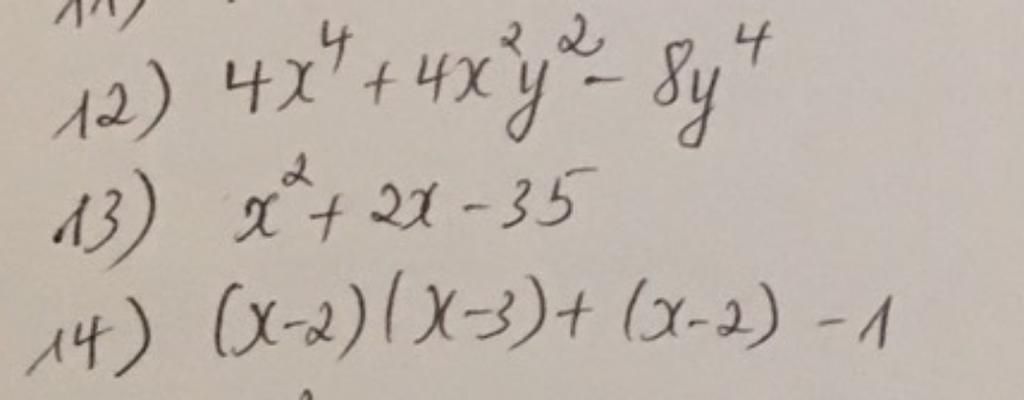 11)
12) 4x⁴ + 4x²y² - 8y⁴
13) x² + 2x - 35
14) (x-2)(x-3) + (x-2) - 1